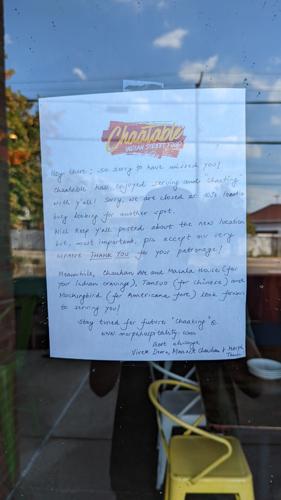 Chaatable
INDIAN STREET FOOD
Hey there; so sorry to have missed you!
Chaatable has enjoyed serving and "chaating"
with y'all! Sorry, we are closed at this location
busy looking for another spot.
Will keep y'all posted about the new location
but, most important, pls accept our very
sincere THANK YOU for your patronage!
Meanwhile, Chauhan Ale and Masala House (for
your Indian cravings), Tansuo (for Chinese) and
Mockingbird (for Americana fare) look forward
to serving you!
Stay tuned for future "chaating" @
www.morphhospitality.com
Best always
Vivek Deora, Maneet Chauhan & Morph
Team